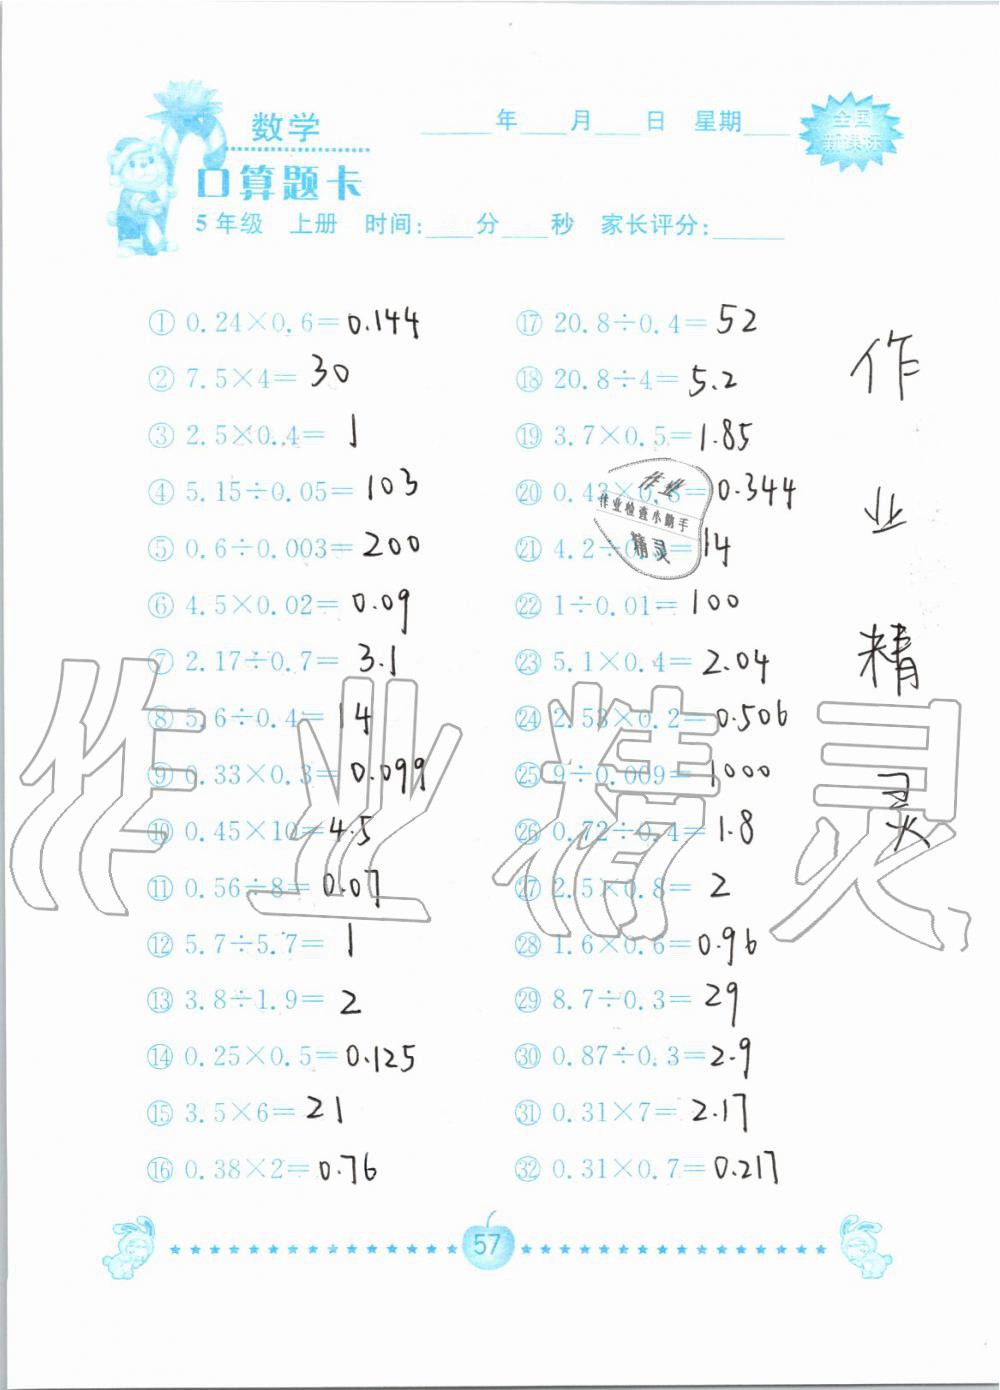 数学
____年____月____日 星期____
全国
新课标
口算题卡
5年级 上册 时间:____分____秒 家长评分:____
① 0.24×0.6=0.144
② 7.5×4=30
③ 2.5×0.4=1
④ 5.15÷0.05=103
⑤ 0.6÷0.003=200
⑥ 4.5×0.02=0.09
⑦ 2.17÷0.7=3.1
⑧ 5.6÷0.4=14
⑨ 0.33×0.3=0.099
⑩ 0.45×10=4.5
⑪ 0.56÷8=0.07
⑫ 5.7÷5.7=1
⑬ 3.8÷1.9=2
⑭ 0.25×0.5=0.125
⑮ 3.5×6=21
⑯ 0.38×2=0.76
⑰ 20.8÷0.4=52
⑱ 20.8÷4=5.2
⑲ 3.7×0.5=1.85
⑳ 0.43×0.8=0.344
㉑ 4.2÷0.=14
㉒ 1÷0.01=100
㉓ 5.1×0.4=2.04
㉔ 2.53×0.2=0.506
㉕ 9÷0.009=1000
㉖ 0.72÷0.4=1.8
㉗ 2.5×0.8=2
㉘ 1.6×0.6=0.96
㉙ 8.7÷0.3=29
㉚ 0.87÷0.3=2.9
㉛ 0.31×7=2.17
㉜ 0.31×0.7=0.217
作业
作业检查小助手
精灵
作业精灵
作业精灵
57